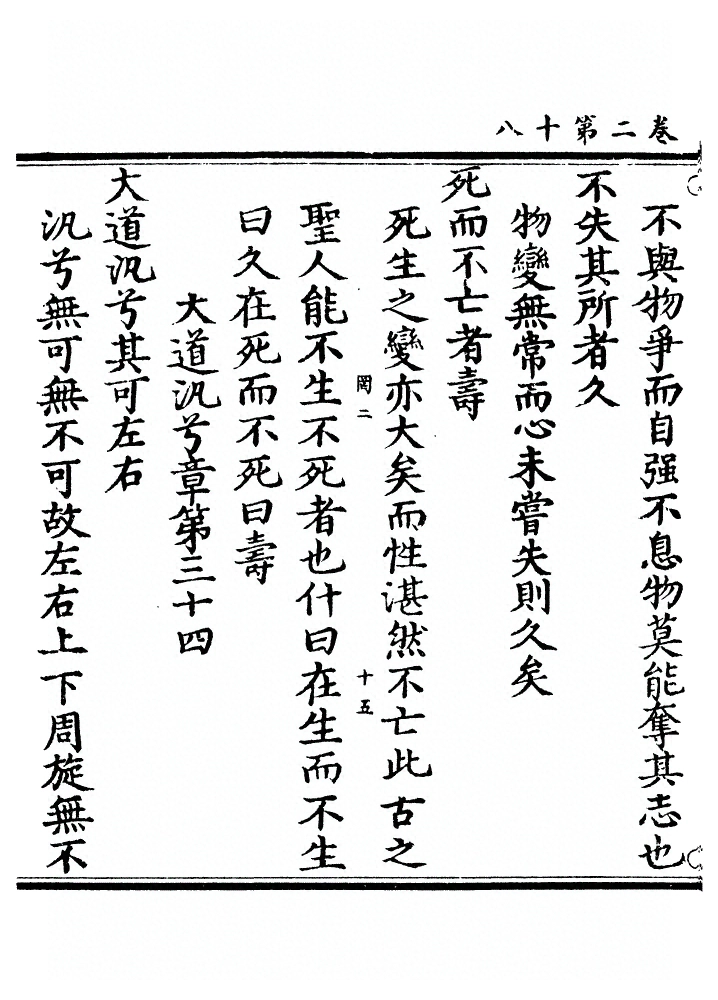 卷二第十八
不與物爭而自强不息物莫能奪其志也
不失其所者久
物變無常而心未嘗失則久矣
死而不亡者壽
死生之變亦大矣而性湛然不亡此古之
罔二
十五
聖人能不生不死者也什曰在生而不生
曰久在死而不死曰壽
大道汎兮章第三十四
大道汎兮其可左右
汎兮無可無不可故左右上下周旋無不